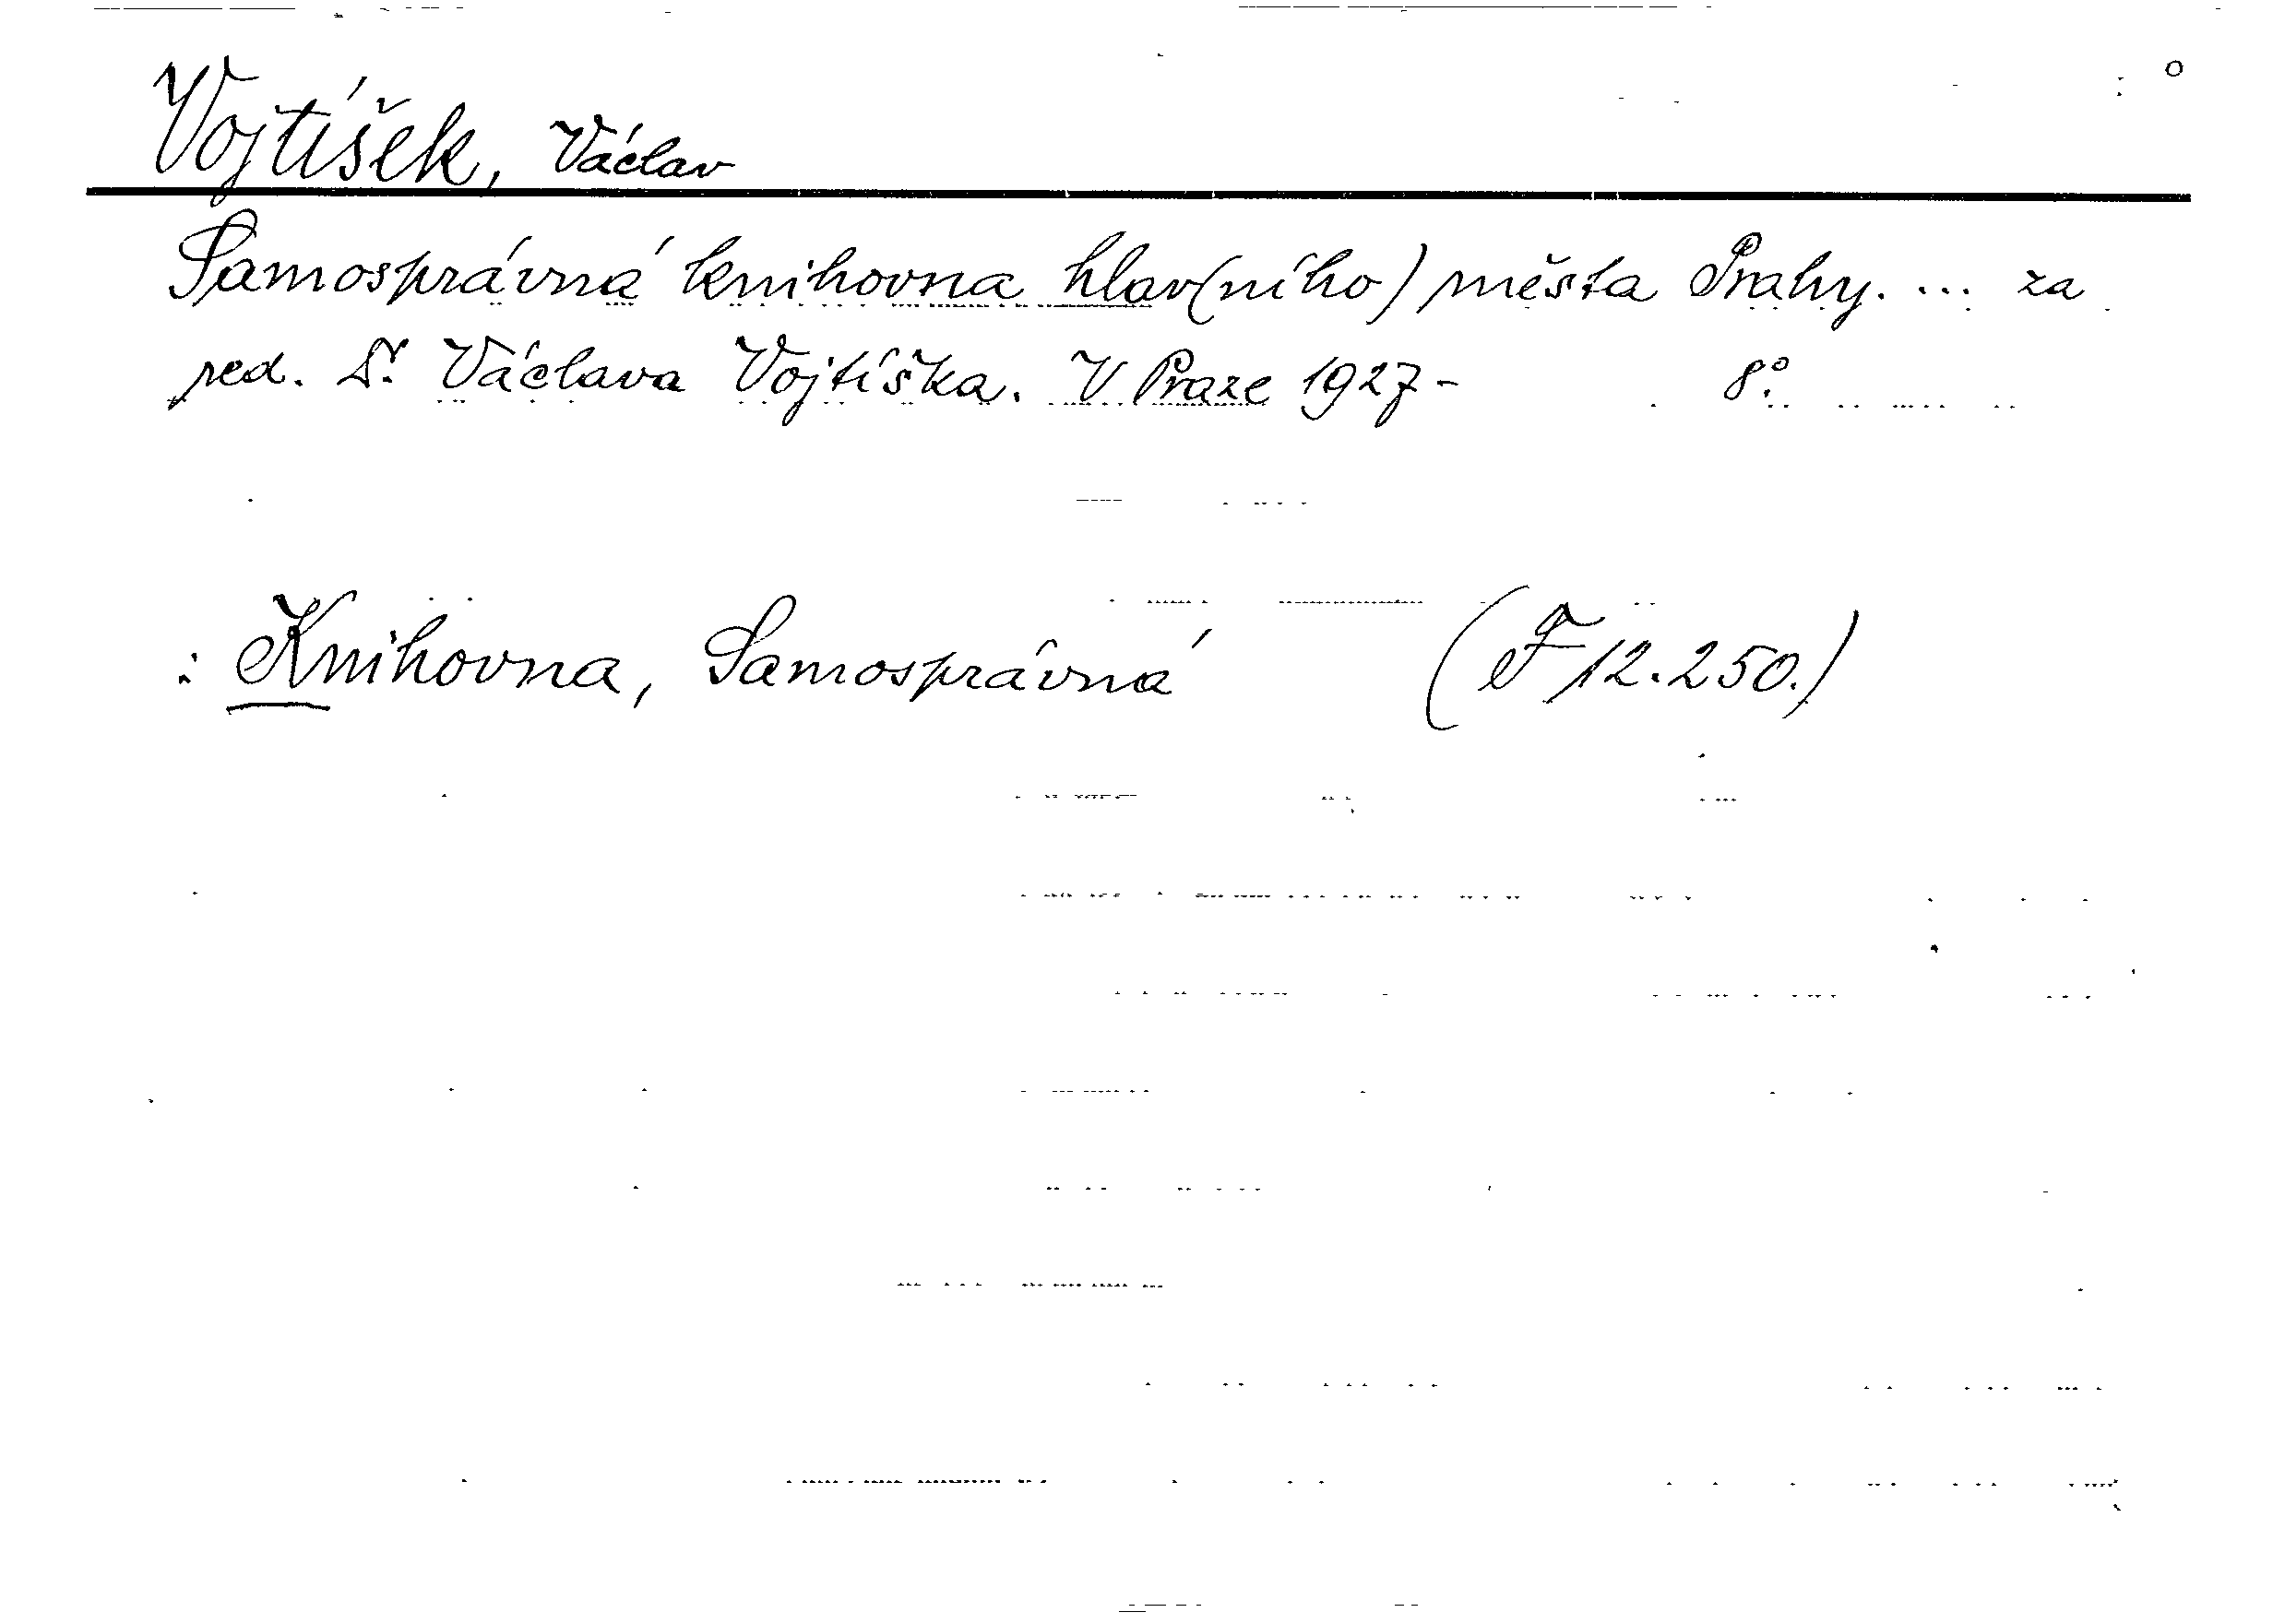 Vojtíšek, Václav
Samosprávná knihovna hlav(ního) města Prahy. ... za
red. Dr. Václava Vojtíška. V Praze 1927- 8°.
: Knihovna, Samosprávná (F 12.250.)